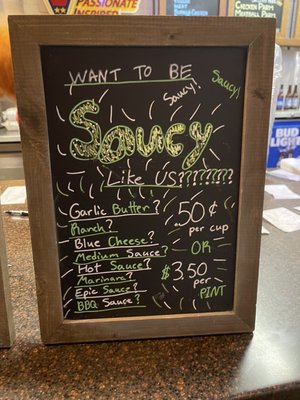 PASSIONATE
INSPIRED
MEAT
BURGER CHICKEN
CHICKEN PARM
MEATBALL PARM
WANT TO BE
Saucy!
Saucy!
Saucy
Like Us????????
Garlic Butter?
Ranch?
Blue Cheese?
Medium Sauce?
Hot Sauce?
Marinara?
Epic Sauce?
BBQ Sauce?
.50¢
per cup
OR
$3.50
per
PINT
BUD
LIGHT